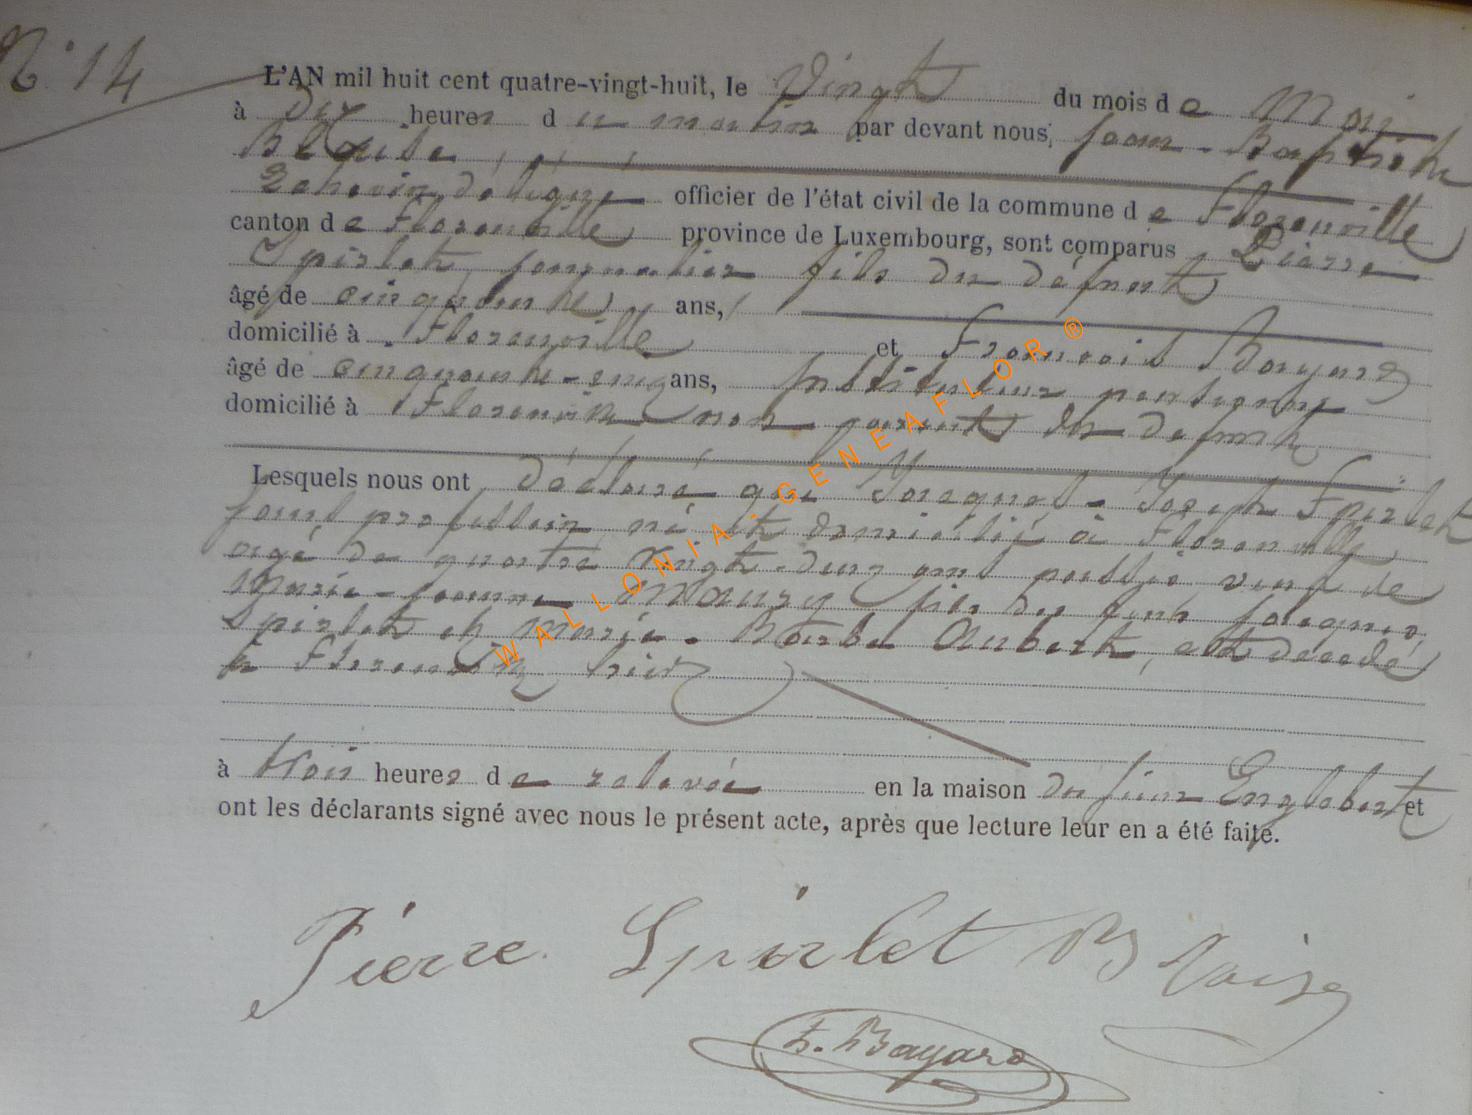 N° 14
L'AN mil huit cent quatre-vingt-huit, le Vingt du mois de Mai
à Dix heures du matin par devant nous, Jean-Baptiste
Blaise,
Echevin délégué officier de l'état civil de la commune de Florenville
canton de Florenville province de Luxembourg, sont comparus Pierre
Spirlet, journalier fils du défunt
âgé de cinquante ans,
domicilié à Florenville et François Bayard
âgé de cinquante-cinq ans, Instituteur pensionné
domicilié à Florenville non parent du défunt
Lesquels nous ont déclaré que Jacques-Joseph Spirlet
sans profession né et domicilié à Florenville
agé de quatre vingt-deux ans passés, veuf de
Marie-Jeanne Mauzy fils des feus Jacques
Spirlet et Marie-Barbe Aubert, est décédé
à Florenville hier
à trois heures de relevée en la maison du sieur Englebert et
ont les déclarants signé avec nous le présent acte, après que lecture leur en a été faite.
Pierre Spirlet Blaise
F. Bayard
WALLONIA-GENEAFLOR ®